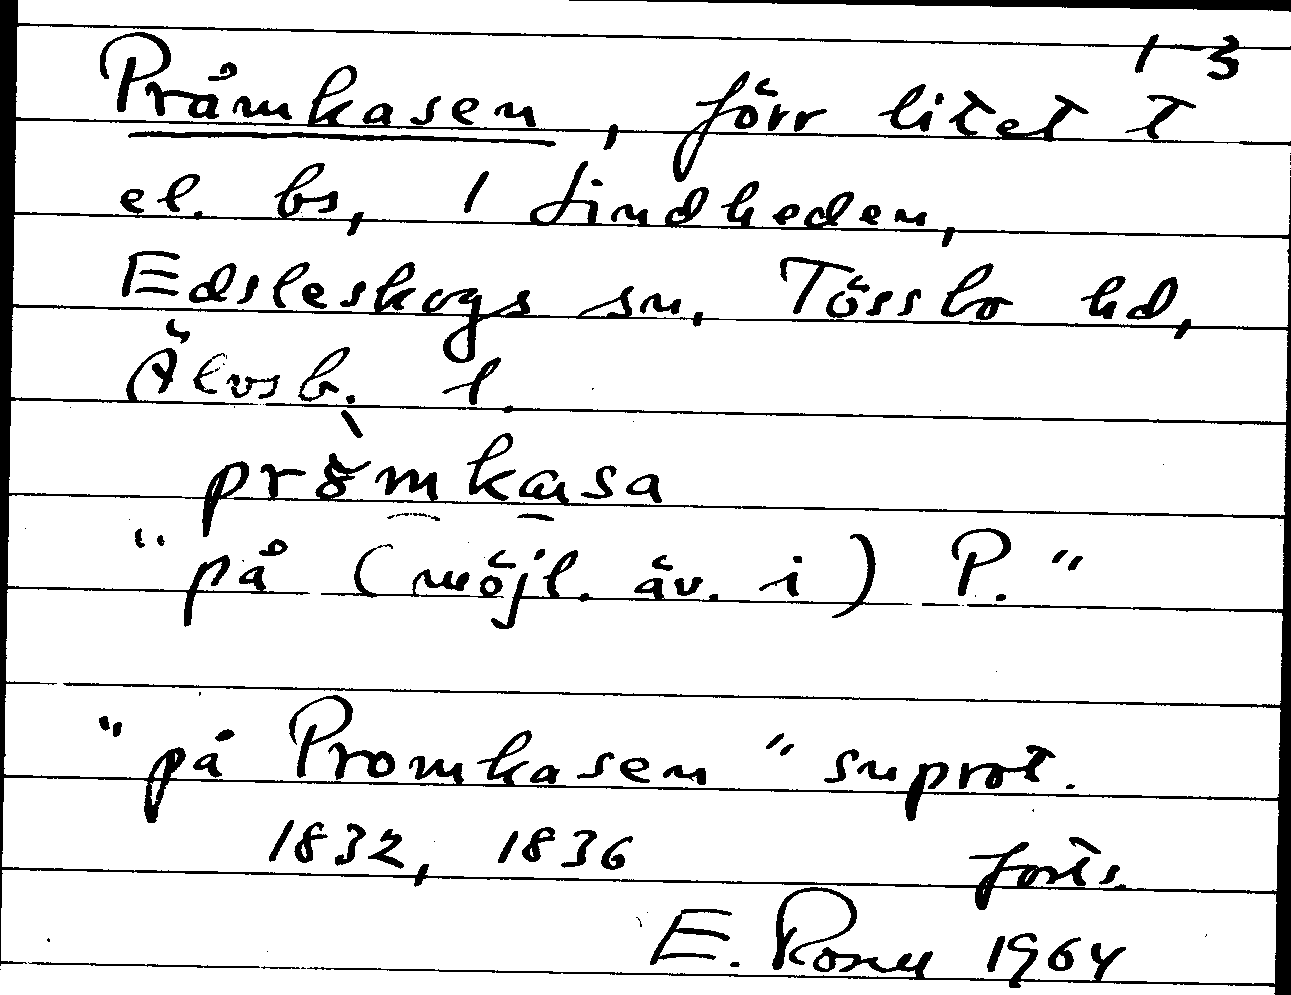 1-3
Pråmkasen, förr litet t
el. bs, 1 Lindheden,
Edsleskogs sn, Tössbo hd,
Älvsb. l.
prò̀mkasa
"på (möjl. äv. i) P."
"på Promkasen" snprot.
1832, 1836 forts.
E. 1964